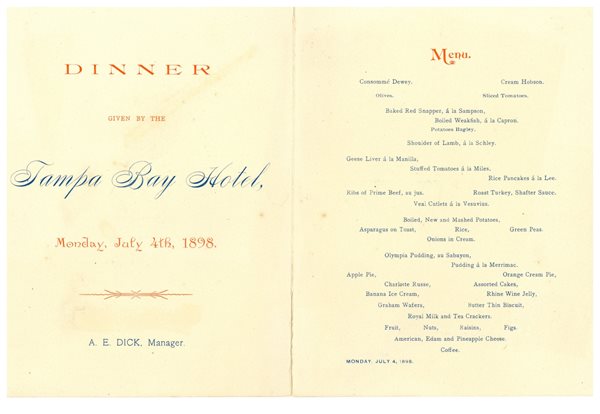 DINNER
GIVEN BY THE
Tampa Bay Hotel,
Monday, July 4th, 1898.
A. E. DICK, Manager.
Menu.
Consommé Dewey. Cream Hobson.
Olives. Sliced Tomatoes.
Baked Red Snapper, á la Sampson,
Boiled Weakfish, á la Capron.
Potatoes Bagley.
Shoulder of Lamb, á la Schley.
Geese Liver á la Manilla,
Stuffed Tomatoes á la Miles,
Rice Pancakes á la Lee.
Ribs of Prime Beef, au jus. Roast Turkey, Shafter Sauce.
Veal Cutlets á la Vesuvius.
Boiled, New and Mashed Potatoes,
Asparagus on Toast, Rice, Green Peas.
Onions in Cream.
Olympia Pudding, au Sabayon,
Pudding á la Merrimac.
Apple Pie, Orange Cream Pie,
Charlotte Russe, Assorted Cakes,
Banana Ice Cream, Rhine Wine Jelly,
Graham Wafers, Butter Thin Biscuit,
Royal Milk and Tea Crackers.
Fruit, Nuts, Raisins, Figs
American, Edam and Pineapple Cheese.
Coffee.
MONDAY, JULY 4, 1898.